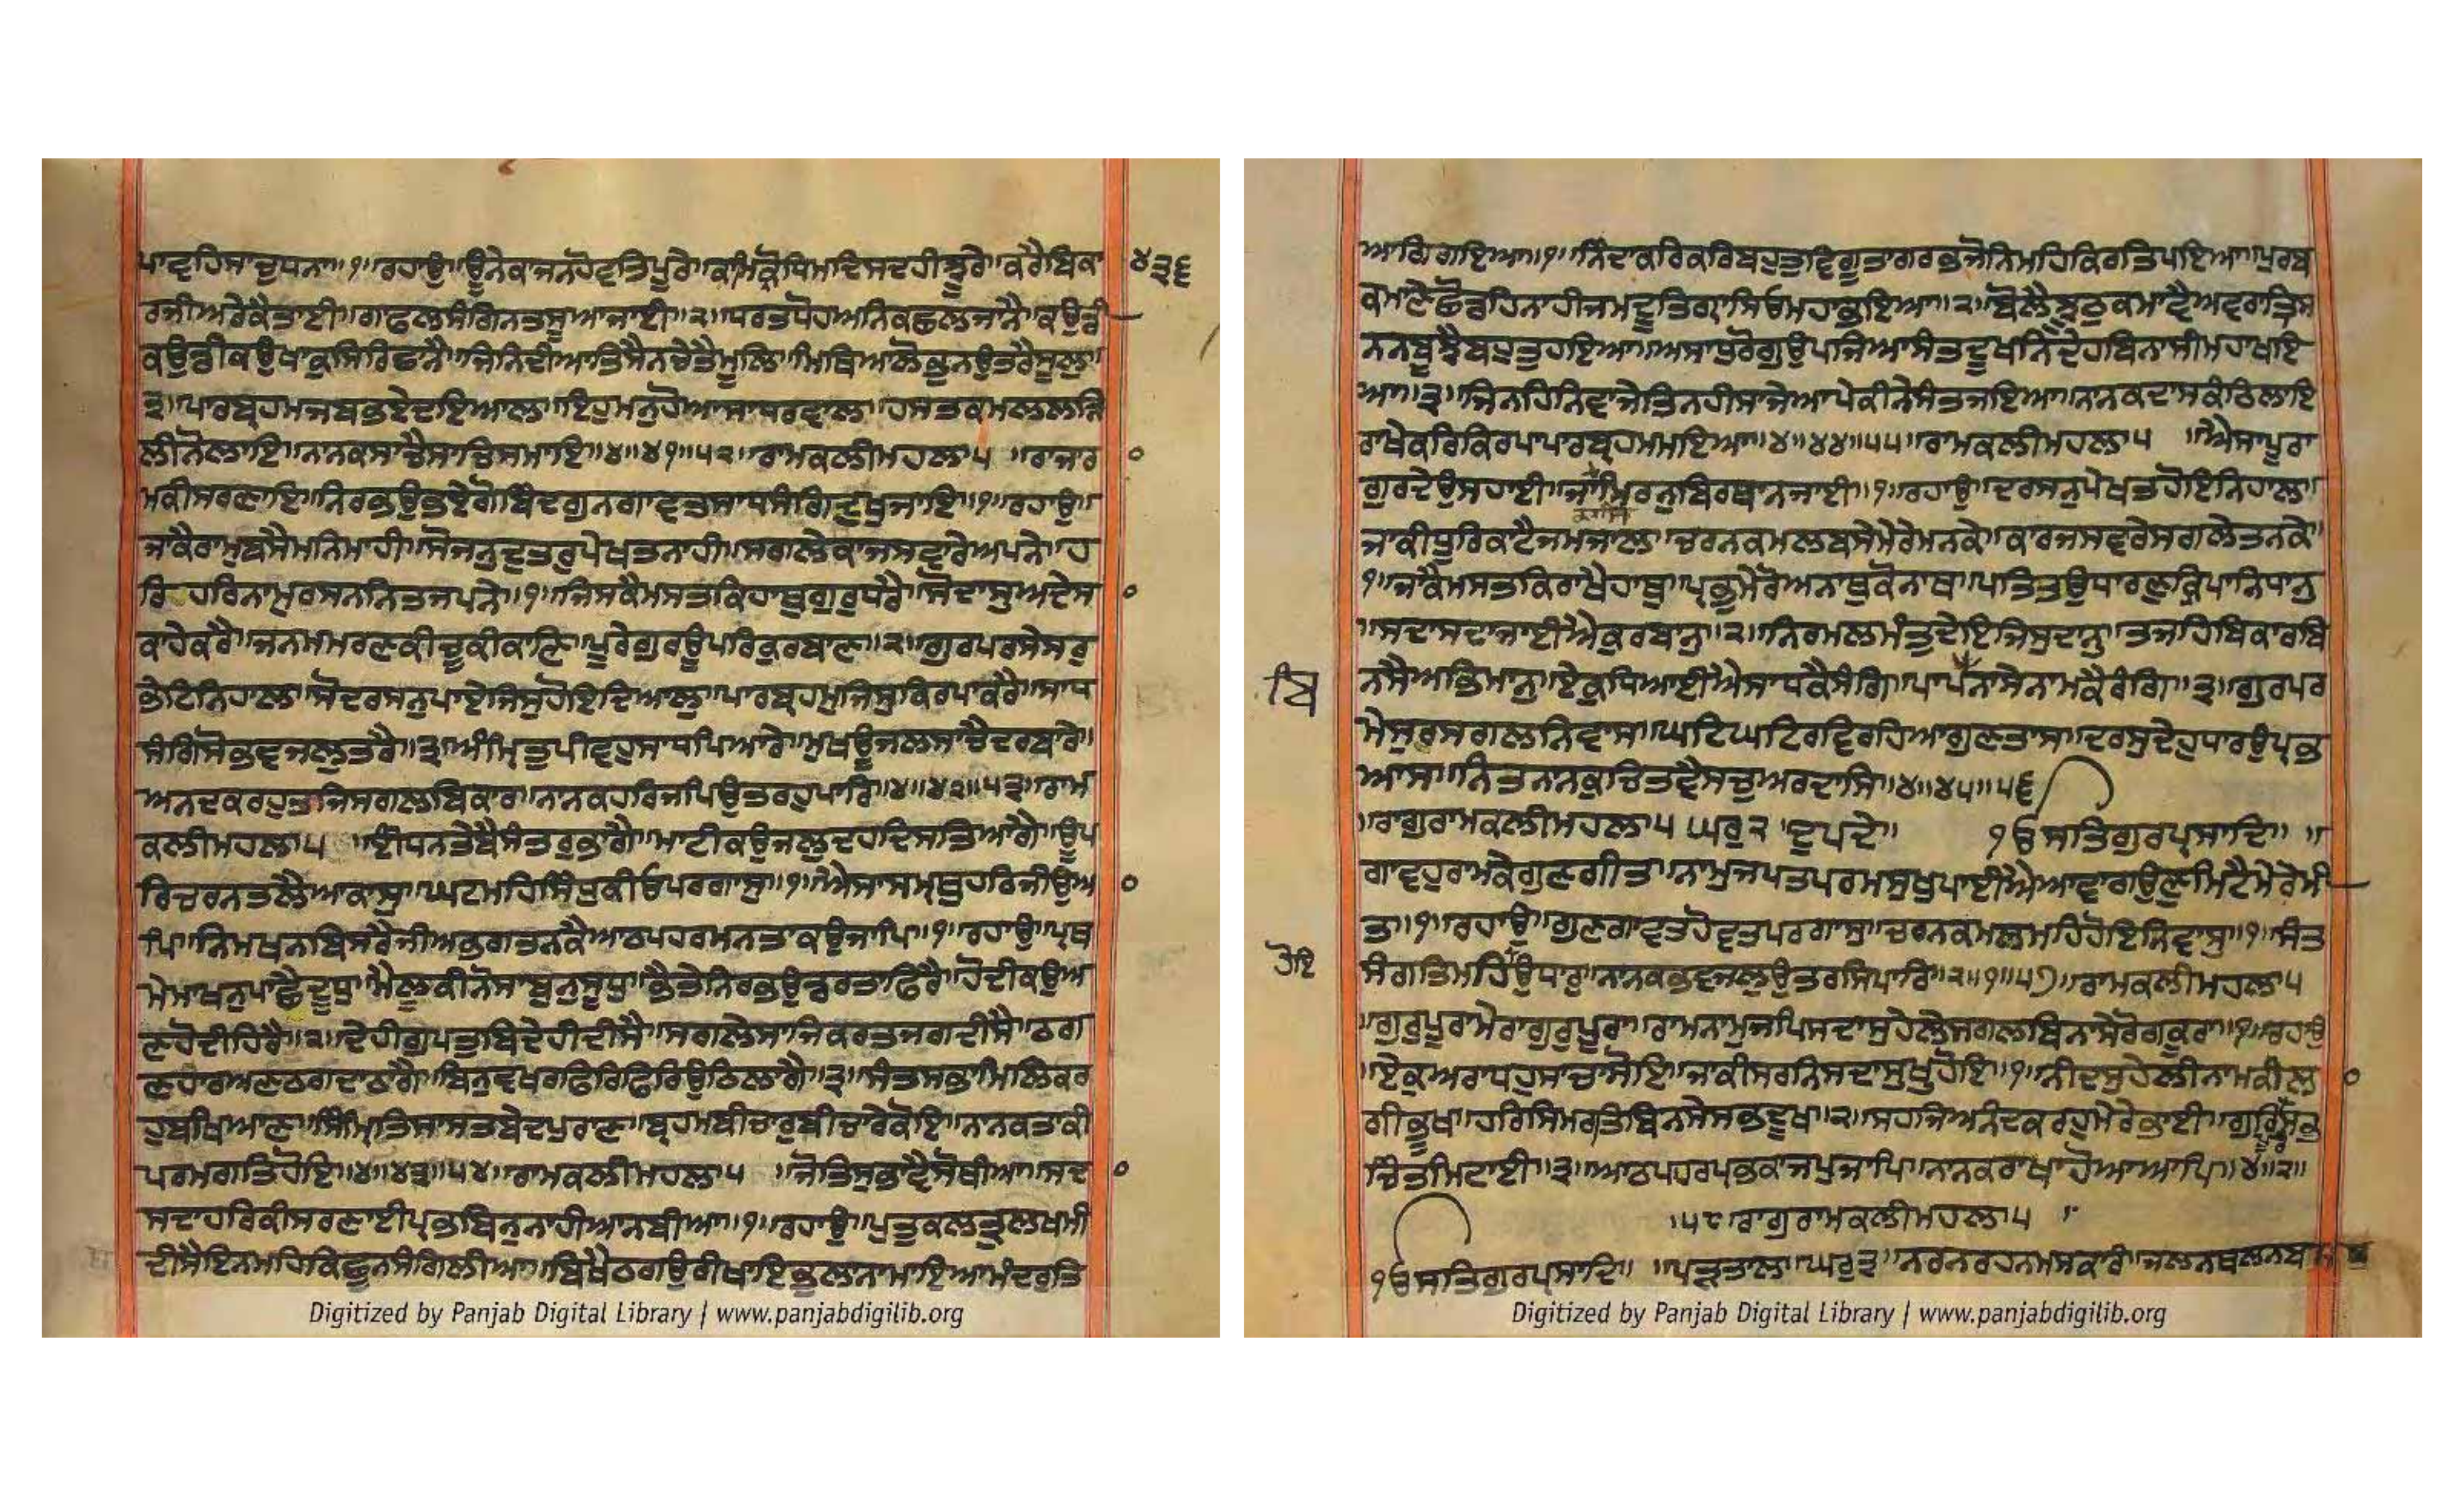 ਪਾਵਹਿਸਾਚੁਧਨਾ॥੧॥ਰਹਾਉ॥ਊਨੇਕਾਜਨਹੋਵਤਿਪੂਰੇ॥ਕਾਮਿਕ੍ਰੋਧਿਮਦਿਸਦਹੀਝੂਰੇ॥ਕਰੈਬਿਕਾ
੪੩੬
ਰਜੀਅਰੇਕੈਤਾਈ॥ਗਾਫਲਸੰਗਿਨਤਸੂਆਜਾਈ॥੨॥ਧਰਤਧੋਹਅਨਿਕਛਲਜਾਨੈ॥ਕਉਡੀ
ਕਉਡੀਕਉਖਾਕੁਸਿਰਿਛਾਨੈ॥ਜਿਨਿਦੀਆਤਿਸੈਨਚੇਤੈਮੂਲਿ॥ਮਿਥਿਆਲੋਭੁਨਉਤਰੈਸੂਲੁ॥
੩॥ਪਾਰਬ੍ਰਹਮਜਬਭਏਦਇਆਲ॥ਇਹੁਮਨੁਹੋਆਸਾਧਰਵਾਲ॥ਹਸਤਕਮਲਲੜਿ
ਲੀਨੋਲਾਇ॥ਨਾਨਕਸਾਚੈਸਾਚਿਸਮਾਇ॥੪॥੪੧॥੫੨॥ਰਾਮਕਲੀਮਹਲਾ੫ ॥ਰਾਜਾਰਾ
ਮਕੀਸਰਣਾਇ॥ਨਿਰਭਉਭਏਗੋਬਿੰਦਗੁਨਗਾਵਤਸਾਧਸੰਗਿਦੁਖੁਜਾਇ॥੧॥ਰਹਾਉ॥
ਜਾਕੈਰਾਮੁਬਸੈਮਨਿਮਾਹੀ॥ਸੋਜਨੁਦੁਤਰੁਪੇਖਤਨਾਹੀ॥ਸਗਲੇਕਾਜਸਵਾਰੇਅਪਨੇ॥ਹ
ਰਿਹਰਿਨਾਮੁਰਸਨਨਿਤਜਪਨੇ॥੧॥ਜਿਸਕੈਮਸਤਕਿਹਾਥੁਗੁਰੁਧਰੈ॥ਸੋਦਾਸੁਅਦੇਸਾ
ਕਾਹੇਕਰੈ॥ਜਨਮਮਰਣਕੀਚੂਕੀਕਾਣਿ॥ਪੂਰੇਗੁਰਊਪਰਿਕੁਰਬਾਣ॥੨॥ਗੁਰਪਰਮੇਸਰੁ
ਭੇਟਿਨਿਹਾਲ॥ਸੋਦਰਸਨੁਪਾਏਜਿਸੁਹੋਇਦਿਆਲੁ॥ਪਾਰਬ੍ਰਹਮੁਜਿਸੁਕਿਰਪਾਕਰੈ॥ਸਾਧ
ਸੰਗਿਸੋਭਵਜਲੁਤਰੈ॥੩॥ਅੰਮ੍ਰਿਤੁਪੀਵਹੁਸਾਧਪਿਆਰੇ॥ਮੁਖਊਜਲਸਾਚੈਦਰਬਾਰੇ॥
ਅਨਦਕਰਹੁਤਜਿਸਗਲਬਿਕਾਰ॥ਨਾਨਕਹਰਿਜਪਿਉਤਰਹੁਪਾਰਿ॥੪॥੪੨॥੫੩॥ਰਾਮ
ਕਲੀਮਹਲਾ੫ ॥ਈਂਧਨਤੇਬੈਸੰਤਰੁਭਾਗੈ॥ਮਾਟੀਕਉਜਲੁਦਹਦਿਸਤਿਆਗੈ॥ਊਪ
ਰਿਚਰਨਤਲੈਆਕਾਸੁ॥ਘਟਮਹਿਸਿੰਧੁਕੀਓਪਰਗਾਸੁ॥੧॥ਐਸਾਸੰਮ੍ਰਥੁਹਰਿਜੀਉਆ
ਪਿ॥ਨਿਮਖਨਬਿਸਰੈਜੀਅਭਗਤਨਕੈਆਠਪਹਰਮਨਤਾਕਉਜਾਪਿ॥੧॥ਰਹਾਉ॥ਪ੍ਰਥ
ਮੇਮਾਖਨੁਪਾਛੈਦੂਧੁ॥ਮੈਲੂਕੀਨੋਸਾਬੁਨੁਸੂਧੁ॥ਭੈਤੇਨਿਰਭਉਡਰਤਾਫਿਰੈ॥ਹੋਦੀਕਉਅ
ਣਹੋਦੀਹਿਰੈ॥੨॥ਦੇਹੀਗੁਪਤਬਿਦੇਹੀਦੀਸੈ॥ਸਗਲੇਸਾਜਿਕਰਤਜਗਦੀਸੈ॥ਠਗ
ਣਹਾਰਅਣਠਗਦਾਠਾਗੈ॥ਬਿਨੁਵਖਰਫਿਰਿਫਿਰਿਉਠਿਲਾਗੈ॥੩॥ਸੰਤਸਭਾਮਿਲਿਕਰ
ਹੁਬਖਿਆਣ॥ਸਿੰਮ੍ਰਿਤਿਸਾਸਤਬੇਦਪੁਰਾਣ॥ਬ੍ਰਹਮਬੀਚਾਰੁਬੀਚਾਰੇਕੋਇ॥ਨਾਨਕਤਾਕੀ
ਪਰਮਗਤਿਹੋਇ॥੪॥੪੩॥੫੪॥ਰਾਮਕਲੀਮਹਲਾ੫ ॥ਜੋਤਿਸੁਭਾਵੈਸੋਥੀਆ॥ਸਦਾ
ਸਦਾਹਰਿਕੀਸਰਣਾਈਪ੍ਰਭਬਿਨੁਨਾਹੀਆਨਬੀਆ॥੧॥ਰਹਾਉ॥ਪੁਤੁਕਲਤ੍ਰੁਲਖਮੀ
ਦੀਸੈਇਨਮਹਿਕਿਛੂਨਸੰਗਿਲੀਆ॥ਬਿਖੈਠਗਉਰੀਖਾਇਭੁਲਾਨਾਮਾਇਆਮੰਦਰੁਤਿ
Digitized by Panjab Digital Library | www.panjabdigilib.org
ਆਗਿਗਇਆ॥੧॥ਨਿੰਦਾਕਰਿਕਰਿਬਹੁਤੁਵਿਗੂਤਾਗਰਭਜੋਨਿਮਹਿਕਿਰਤਿਪਇਆ॥ਪੁਰਬ
ਕਮਾਣੇਛੋਡਹਿਨਾਹੀਜਮਦੂਤਿਗ੍ਰਾਸਿਓਮਹਾਭਇਆ॥੨॥ਬੋਲੈਝੂਠੁਕਮਾਵੈਅਵਰਾਤ੍ਰਿਸ
ਨਨਬੂਝੈਬਹੁਤੁਹਇਆ॥ਅਸਾਧਰੋਗੁਉਪਜਿਆਸੰਤਦੂਖਨਿਦੇਹਬਿਨਾਸੀਮਹਾਖਇ
ਆ॥੩॥ਜਿਨਹਿਨਿਵਾਜੇਤਿਨਹੀਸਾਜੇਆਪੇਕੀਨੇਸੰਤਜਇਆ॥ਨਾਨਕਦਾਸਕੰਠਿਲਾਇ
ਰਾਖੇਕਰਿਕਿਰਪਾਪਾਰਬ੍ਰਹਮਮਇਆ॥੪॥੪੪॥੫੫॥ਰਾਮਕਲੀਮਹਲਾ੫ ॥ਐਸਾਪੂਰਾ
ਗੁਰਦੇਉਸਹਾਈ॥ਜਾਕਾਸਿਮਰਨੁਬਿਰਥਾਨਜਾਈ॥੧॥ਰਹਾਉ॥ਦਰਸਨੁਪੇਖਤਹੋਇਨਿਹਾਲੁ॥
ਜਾਕੀਧੂਰਿਕਾਟੈਜਮਜਾਲੁ॥ਚਰਨਕਮਲਬਸੇਮੇਰੇਮਨਕੇ॥ਕਾਰਜਸਵਾਰੇਸਗਲੇਤਨਕੇ॥
੧॥ਜਾਕੈਮਸਤਕਿਰਾਖੈਹਾਥੁ॥ਪ੍ਰਭੁਮੇਰੋਅਨਾਥਕੋਨਾਥੁ॥ਪਤਿਤਉਧਾਰਣੁਕ੍ਰਿਪਾਨਿਧਾਨੁ
॥ਸਦਾਸਦਾਜਾਈਐਕੁਰਬਾਨੁ॥੨॥ਨਿਰਮਲਮੰਤੁਦੇਇਜਿਸੁਦਾਨੁ॥ਤਜਹਿਬਿਕਾਰਬਿ
ਬਿ
ਨਸੈਅਭਿਮਾਨੁ॥ਏਕੁਧਿਆਈਐਸਾਧਕੈਸੰਗਿ॥ਪਾਪਨਾਸੇਨਾਮਕੈਰੰਗਿ॥੩॥ਗੁਰਪਰ
ਮੇਸੁਰਸਗਲਨਿਵਾਸ॥ਘਟਿਘਟਿਰਵਿਰਹਿਆਗੁਣਤਾਸ॥ਦਰਸੁਦੇਹੁਧਾਰਉਪ੍ਰਭ
ਆਸ॥ਨਿਤਨਾਨਕੁਚਿਤਵੈਸਚੁਅਰਦਾਸਿ॥੪॥੪੫॥੫੬
॥ਰਾਗੁਰਾਮਕਲੀਮਹਲਾ੫ ਘਰੁ੨ ਦੁਪਦੇ॥ ੧ੳਸਤਿਗੁਰਪ੍ਰਸਾਦਿ॥ ॥
ਗਾਵਹੁਰਾਮਕੇਗੁਣਗੀਤ॥ਨਾਮੁਜਪਤਪਰਮਸੁਖੁਪਾਈਐਆਵਾਗਉਣੁਮਿਟੈਮੇਰੇਮੀ
ਤ॥੧॥ਰਹਾਉ॥ਗੁਣਗਾਵਤਹੋਵਤਪਰਗਾਸੁ॥ਚਰਨਕਮਲਮਹਿਹੋਇਨਿਵਾਸੁ॥੧॥ਸੰਤ
ਹੋਇ
ਸੰਗਤਿਮਹਿਉਧਾਰੁ॥ਨਾਨਕਭਵਜਲੁਉਤਰਸਿਪਾਰਿ॥੨॥੧॥੫੭॥ਰਾਮਕਲੀਮਹਲਾ੫
॥ਗੁਰੁਪੂਰਾਮੇਰਾਗੁਰੁਪੂਰਾ॥ਰਾਮਨਾਮੁਜਪਿਸਦਾਸੁਹੇਲੇਸਗਲਬਿਨਾਸੇਰੋਗਕੂਰਾ॥੧॥ਰਹਾਉ
॥ਏਕੁਅਰਾਧਹੁਸਾਚਾਸੋਇ॥ਜਾਕੀਸਰਨਿਸਦਾਸੁਖੁਹੋਇ॥੧॥ਨੀਦਸੁਹੇਲੀਨਾਮਕੀਲਾ
ਗੀਭੂਖ॥ਹਰਿਸਿਮਰਤਿਬਿਨਸੇਸਭਦੂਖ॥੨॥ਸਹਜਿਅਨੰਦਕਰਹੁਮੇਰੇਭਾਈ॥ਗੁਰਿਸਭ
ਚਿੰਤਮਿਟਾਈ॥੩॥ਆਠਪਹਰਪ੍ਰਭਕਾਜਪੁਜਾਪਿ॥ਨਾਨਕਰਾਖਾਹੋਆਆਪਿ॥੪॥੨॥
॥੫੮ਰਾਗੁਰਾਮਕਲੀਮਹਲਾ੫ ॥
੧ੳਸਤਿਗੁਰਪ੍ਰਸਾਦਿ॥ ॥ਪੜਤਾਲ॥ਘਰੁ੩॥ਨਰਨਰਹਨਮਸਕਾਰੰ॥ਜਲਨਥਲਨਬ
Digitized by Panjab Digital Library | www.panjabdigilib.org